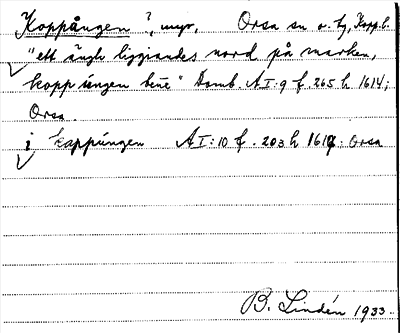 Koppången ?, myr, Orsa sn o. tg, Kopp.l.
"ett ängh liggiandes nord på marken,
kopp ungen bene" Domb. A I:9 f. 265 h 1614;
Orsa.
i kappungen A I:10 f. 203 h 161 : Orsa
B. Lindén 1933.